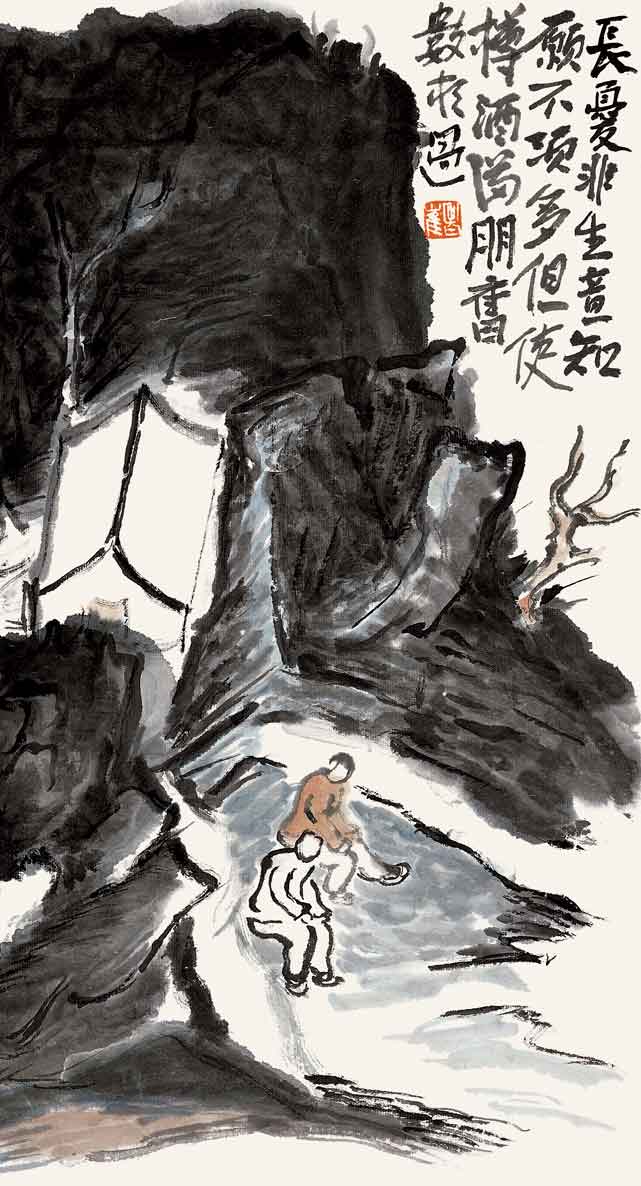 長憂非生意知
願不須多但使
樽酒滿朋舊
數相過